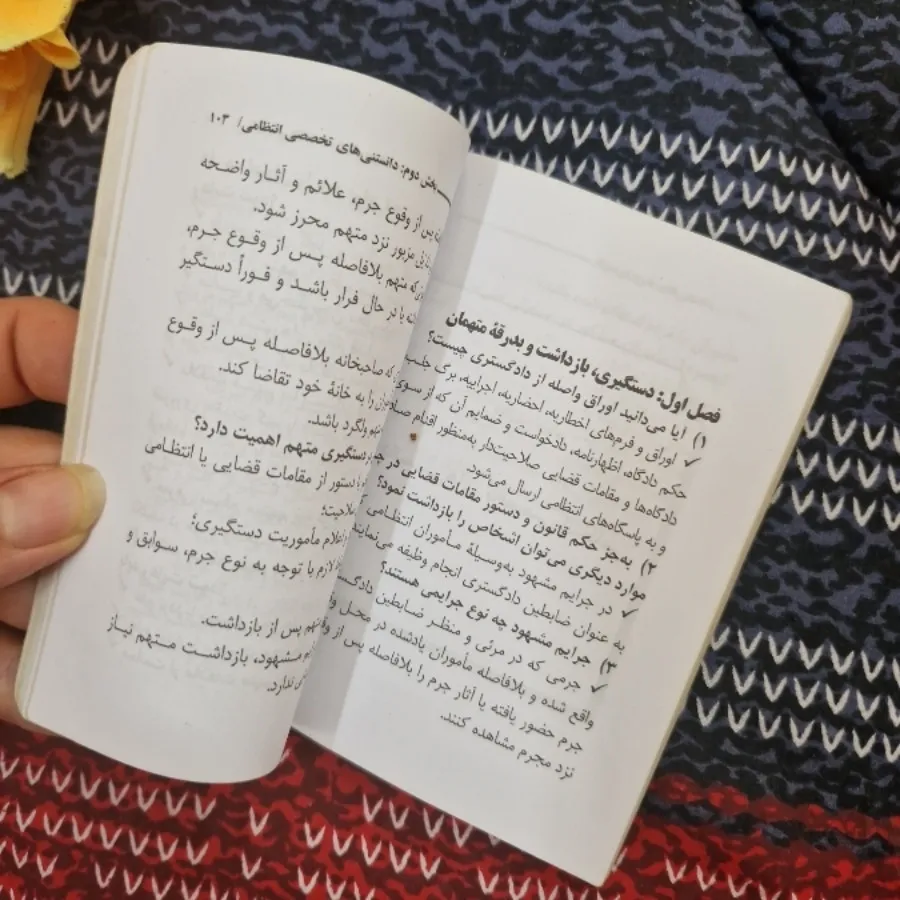 فصل اول: دستگیری، بازداشت و بدرقهٔ متهمان
۱) آیا می‌دانید اوراق واصله از دادگستری چیست؟
✓ اوراق و فرم‌های اخطاریه، احضاریه، اجراییه، برگ جلب
حکم دادگاه، اظهارنامه، دادخواست و ضمایم آن که از سوی
دادگاه‌ها و مقامات قضایی صلاحیت‌دار به‌منظور اقدام
و به پاسگاه‌های انتظامی ارسال می‌شود.
۲) به‌جز حکم قانون و دستور مقامات قضایی در
موارد دیگری می توان اشخاص را بازداشت نمود؟
✓ در جرایم مشهود به‌وسیلهٔ مأموران انتظامی
به عنوان ضابطین دادگستری انجام وظیفه می‌نمایند
۳) جرایم مشهود چه نوع جرایمی هستند؟
✓ جرمی که در مرئی و منظر ضابطین
واقع شده و بلافاصله مأموران یادشده در محل
جرم حضور یافته یا آثار جرم را بلافاصله پس از
نزد مجرم مشاهده کنند.
بخش دوم: دانستنی‌های تخصصی انتظامی/ ۱۰۳
پس از وقوع جرم، علائم و آثار واضحه
مزبور نزد متهم محرز شود.
که متهم بلافاصله پس از وقوع جرم،
یا در حال فرار باشد و فوراً دستگیر
که صاحبخانه بلافاصله پس از وقوع
را به خانهٔ خود تقاضا کند.
ولگرد باشد.
دستگیری متهم اهمیت دارد؟
دستور از مقامات قضایی یا انتظامی
اعلام مأموریت دستگیری؛
لازم با توجه به نوع جرم، سوابق و
پس از بازداشت.
مشهود، بازداشت متهم نیاز
ندارد.